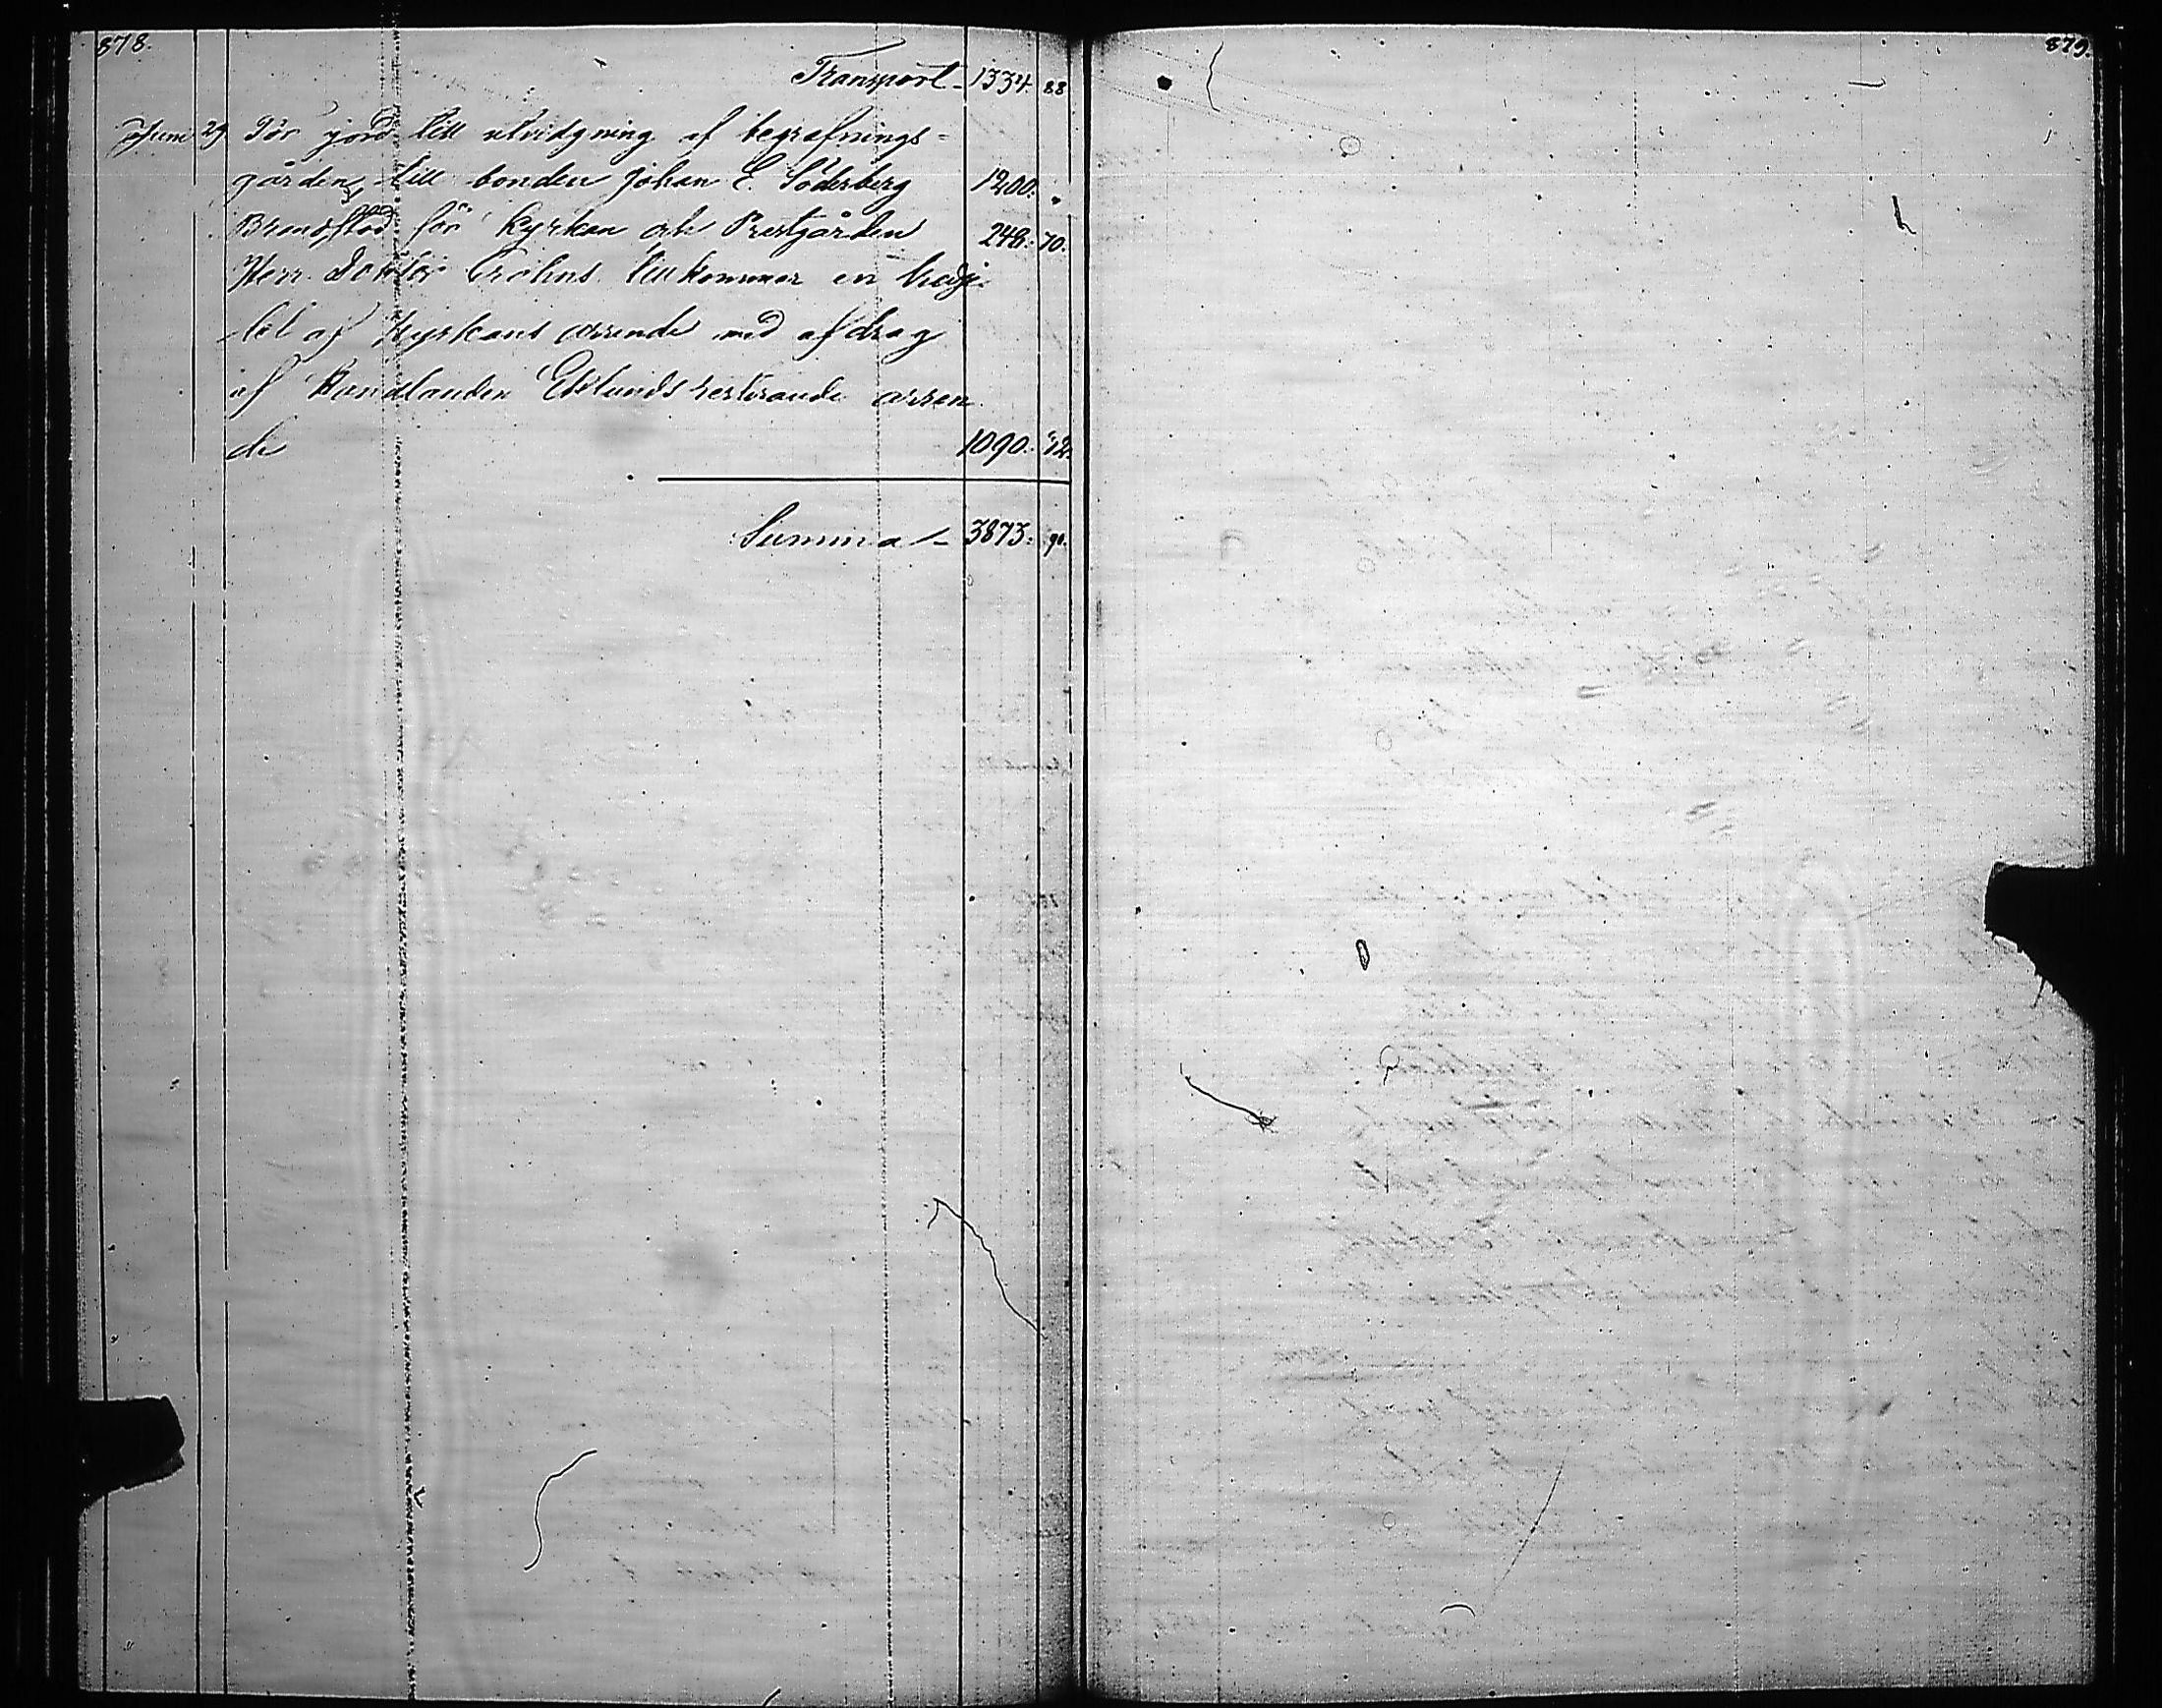 878.
Transport 1334. 88
Juni 29 För jord till utvidgning af begrafnings-
gården, till bonden Johan E. Söderberg 1200. .
Brandstod för kyrkan och Prestgården 248. 70.
Herr Doktor tillkommer en tredje-
del af Kyrkans arrende med afdrag
af Handlanden Eklunds resterande arren
de 1090. 
Summa 3873. 90.
879.